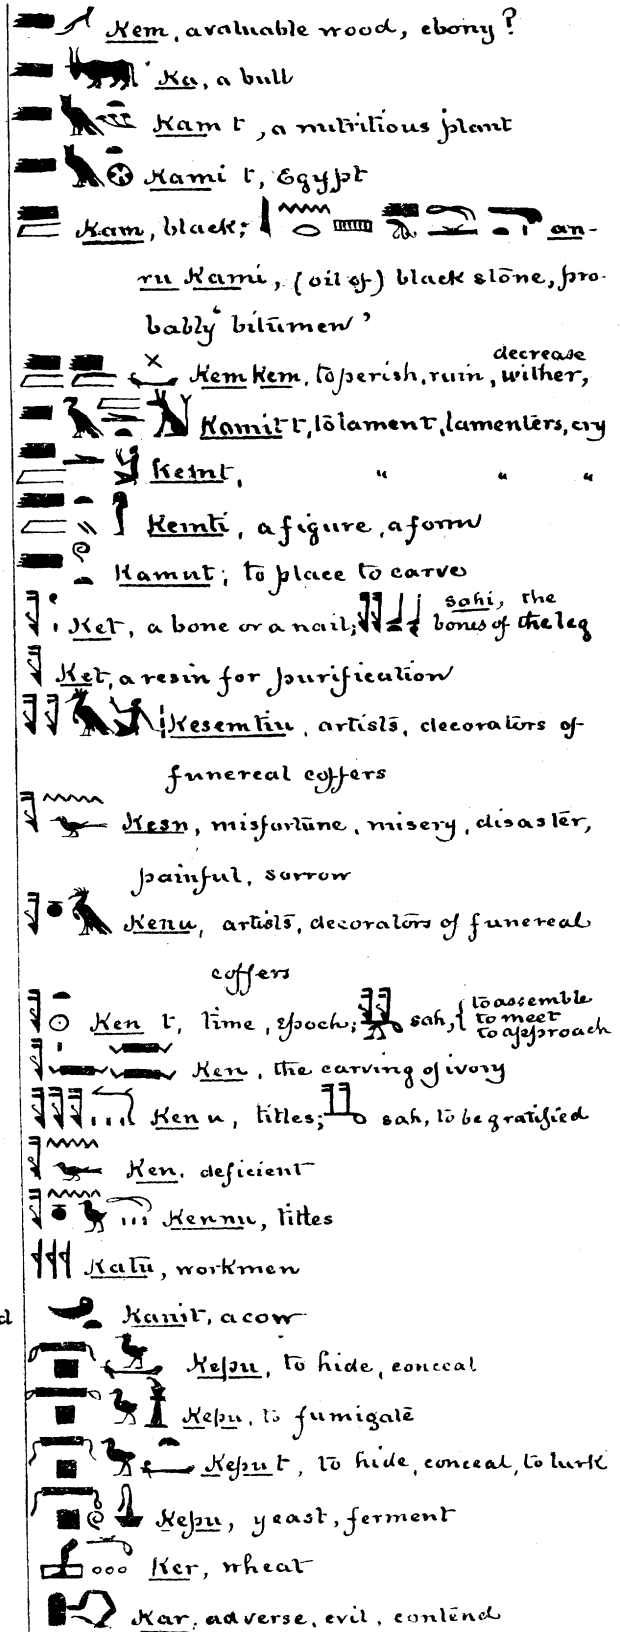 Kem, a valuable wood, ebony?
Ka, a bull
Kam t, a nutritious plant
Kami t, Egypt
Kam, black; an-
ru Kami, (oil of) black stone, pro-
bably "bitumen"
decrease
Kem Kem, to perish, ruin, wither,
Kamit t, to lament, lamenters, cry
Kemt, " " "
Kemti, a figure, a form
Kamut; to place to carve
sahi, the
Ket, a bone or a nail; bones of the leg
Ket, a resin for purification
Kesemtiu, artists, decorators of
funereal coffers
Kesn, misfortune, misery, disaster,
painful, sorrow
Kenu, artists, decorators of funereal
coffers
to assemble
Ken t, time, epoch; sah, { to meet
to approach
Ken, the carving of ivory
Ken u, titles; sah, to be gratified
Ken, deficient
Kennu, titles
Katu, workmen
d Kanit, a cow
Kepu, to hide, conceal
Kepu, to fumigate
Keput, to hide, conceal, to lurk
Kepu, yeast, ferment
Ker, wheat
Kar, adverse, evil, contend